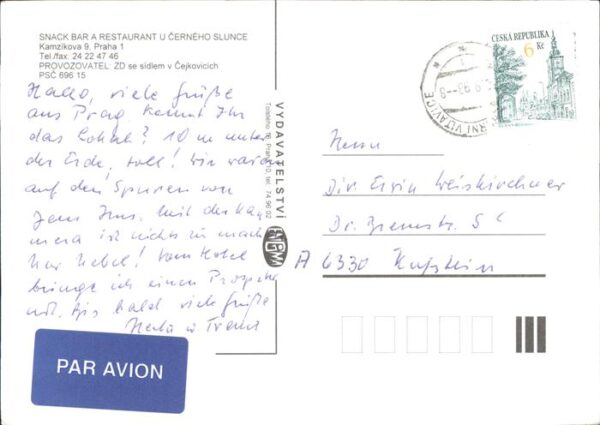 SNACK BAR A RESTAURANT U ČERNÉHO SLUNCE
Kamzíkova 9, Praha 1
Tel./fax. 24 22 47 46
PROVOZOVATEL: ZD se sídlem v Čejkovicích
PSČ 696 15
Hallo, viele Grüße
aus Prag. Kennt Ihr
das Lokal? 10 m unter
der Erde, toll! Wir waren
auf den Spuren von
Jan Mit der Ka-
mera ist nichts zu mach
nur Nebel! Vom Hotel
bringe ich einen Prospekt
mit. Bis bald viele Grüße
Herta u Franz
PAR AVION
VYDAVATELSTVÍ
Praha tel. 74 96 02
ČESKÁ REPUBLIKA
6 Kč
VLTAVICE
Herrn
Dir. Erwin Weiskirchner
Dr. Premstr. 5
A 6330 Kufstein